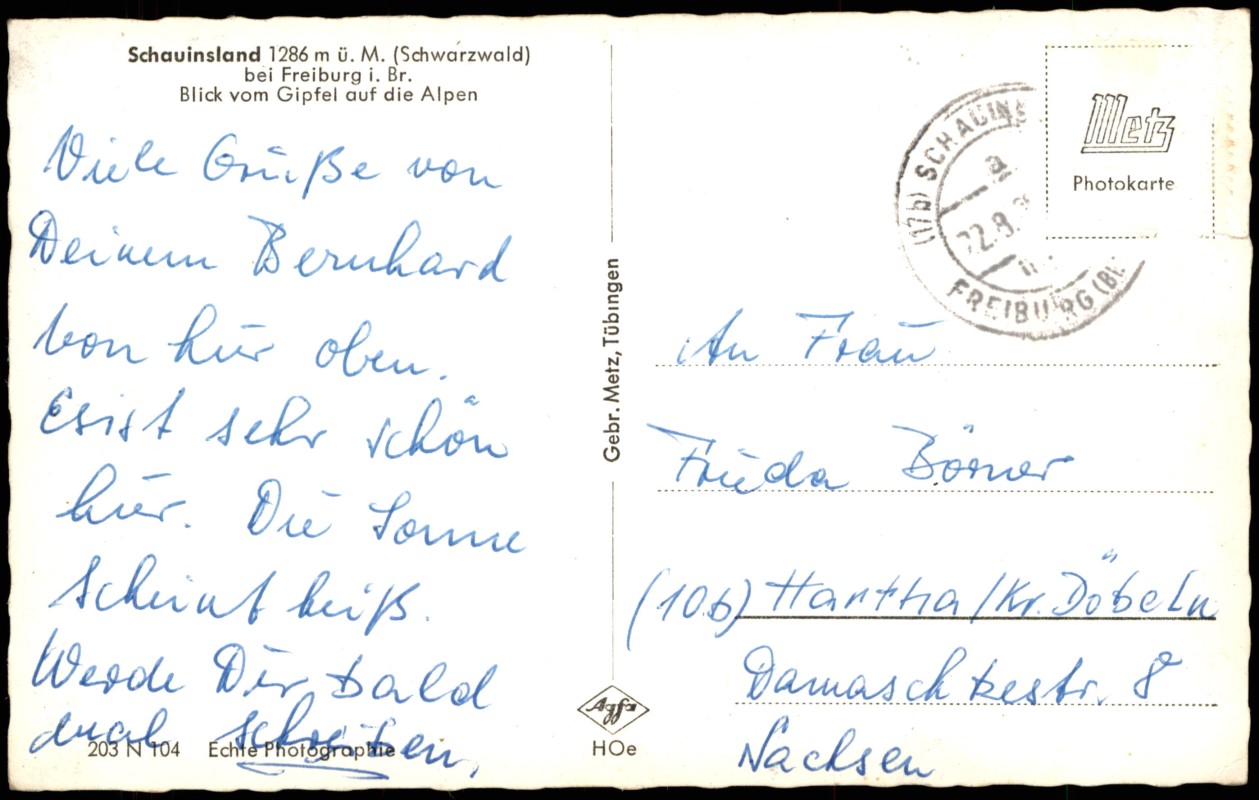 Schauinsland 1286 m ü. M. (Schwarzwald)
bei Freiburg i. Br.
Blick vom Gipfel auf die Alpen
Viele Grüße von
Deinem Bernhard
von hier oben.
Es ist sehr schön
hier. Die Sonne
scheint heiß.
Werde Dir bald
mal schreiben.
203 N 104 Echte Photographie
Gebr. Metz, Tübingen
Agfa
HOe
(17b) SCHAUINS
a
22.8.
FREIBURG (BR.
Metz
Photokarte
An Frau
Frieda Börner
(10b) Hartha/Kr. Döbeln
Damaschkestr. 8
Sachsen